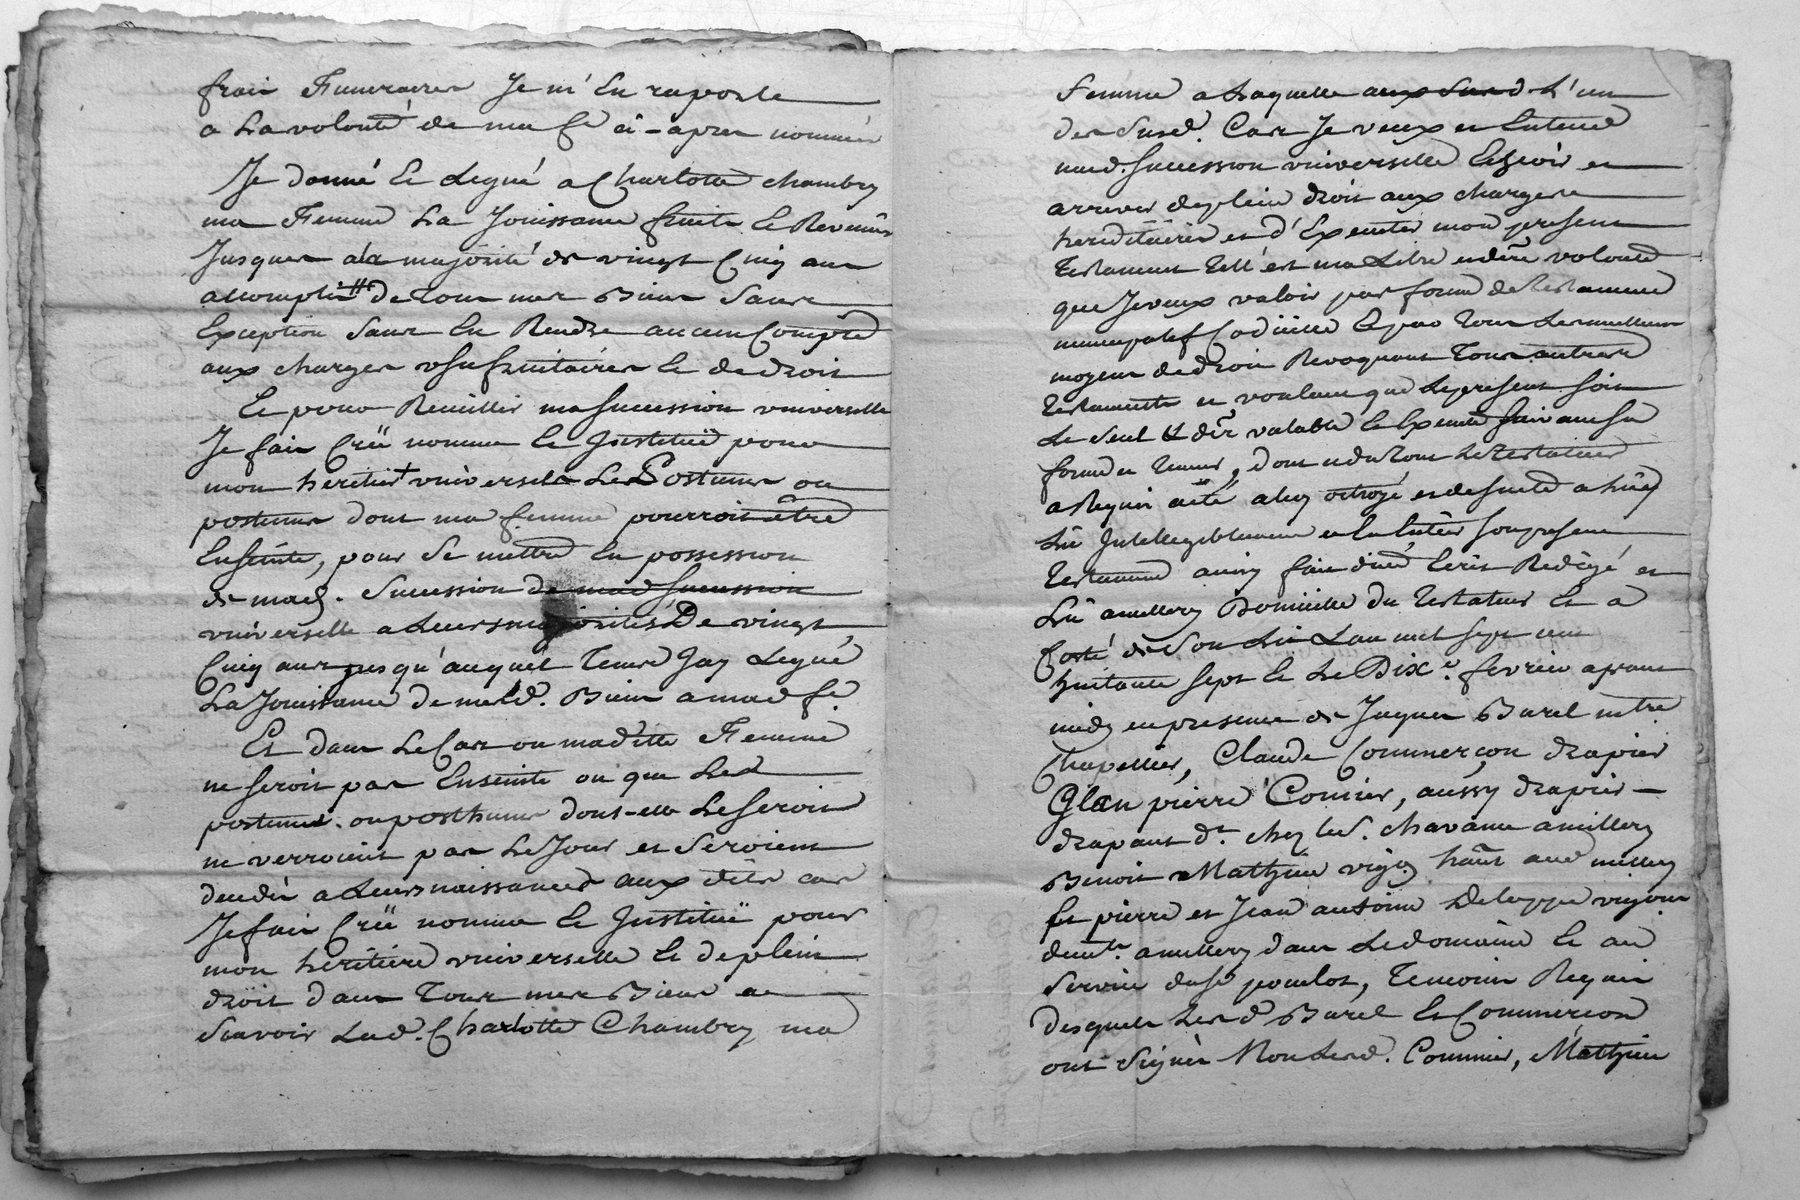 frais Funeraires Je m'en raporte
a La volonté de ma fe ci-apres nommée
Je donne et Legue a Charlotte chambry
ma Femme La Jouissance fruits et Revenus
Jusques a la majorité de vingt Cinq ans
accomplis de tous mes Biens Sans
Exception Sans En Rendre aucun Compte
aux charges usufruitaires et de droit
Et pour Recuillir ma succession universelle
Je fais Créé nomme et Institué pour
mon heritier + universel Le Postume ou
postumes dont ma femme pourroit être
Enseinte, pour Se mettre En possession
de mad. Succession de mad succession
universelle a Leurs majorités De vingt
Cinq ans jusqu'auquel tems Jay Legué
La Jouissance de mesd. Biens a mad fe.
Et dans Le Cas ou maditte Femme
ne seroit pas Enseinte ou que Led
postume ou posthumes dont-elle Le seroit
ne verroient pas Le Jour et Seroient
decedés a Leurs naissances aux dits cas
Je fais Créé nomme et Institué pour
mon heritiere universelle et de plein
droit dans tous mes Biens
Scavoir Lad. Charlotte Chambry ma
Femme a Laquelle aux susd L'un
des Susd. Cas Je veux et Entend
mad. succession universelle Echeoir et
arriver de plein droit aux charges
hereditaires et d'Executer mon present
testament tell'est ma Libre et dere volonté
que Je veux valoir par forme de testament
nuncupatif Codicille et par tous Les meilleurs
moyens de droit Revoquant tous autres
testaments et voulant que Le present soit
Le Seul et der valable et Executé suivant sa
forme et teneur, dont et du tout Le testateur
a Requis acte a luy octroyé et de suitte a luy
Lû Intelligiblement et en Entier son present
testament ainsy fait dicté Ecrit Redigé et
Lû a millery Domicille du testateur et a
Costé de Son Lit L'an mil sept cent
huitante sept et Le Dixe. fevrier apres
midy en presence de Jaques Burel mtre
Chapellier, Claude Commerçon drapier
pierre Comier, aussy drapier
drapant dt. chez led. chavanne a millery
Benoit Mathieu vigon hâut aud millery
et pierre et Jean antoine Delappe vigons
demts. a millery dans Le domaine et au
Service du sr poulot, temoins Requis
desquels Lesd Burel et Commercon
ont Signés Non Lesd. Commier, Mathieu